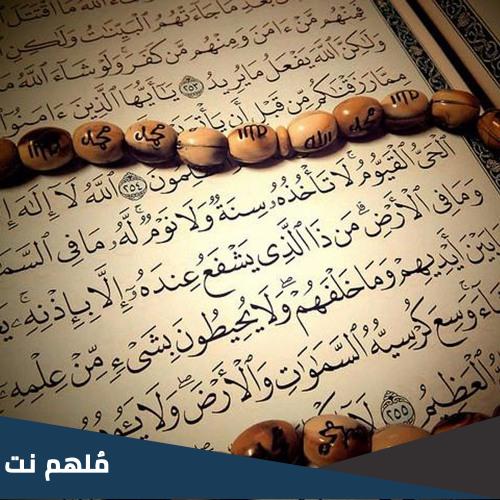 بَعْدِ مَا جَآءَتْهُمُ ٱلْبَيِّنَٰتُ وَلَٰكِنِ
فَمِنْهُم مَّنْ ءَامَنَ وَمِنْهُم مَّن كَفَرَ وَلَوْ شَآءَ ٱللَّهُ مَا
وَلَٰكِنَّ ٱللَّهَ يَفْعَلُ مَا يُرِيدُ ٢٥٣ يَٰٓأَيُّهَا ٱلَّذِينَ ءَامَنُوٓا۟
مِمَّا رَزَقْنَٰكُم مِّن قَبْلِ أَن يَأْتِىَ
محمد محمد الله محمد
ٱللَّهُ لَآ إِلَٰهَ إِلَّا ٢٥٤
ٱلْحَىُّ ٱلْقَيُّومُ لَا تَأْخُذُهُۥ سِنَةٌ وَلَا نَوْمٌ لَّهُۥ مَا فِى
وَمَا فِى ٱلْأَرْضِ مَن ذَا ٱلَّذِى يَشْفَعُ عِندَهُۥٓ إِلَّا بِإِذْنِهِۦ
بَيْنَ أَيْدِيهِمْ وَمَا خَلْفَهُمْ وَلَا يُحِيطُونَ بِشَىْءٍ مِّنْ عِلْمِهِۦٓ
وَسِعَ كُرْسِيُّهُ ٱلسَّمَٰوَٰتِ وَٱلْأَرْضَ وَلَا
ٱلْعَظِيمُ ٢٥٥ لَآ
مُلهم نت